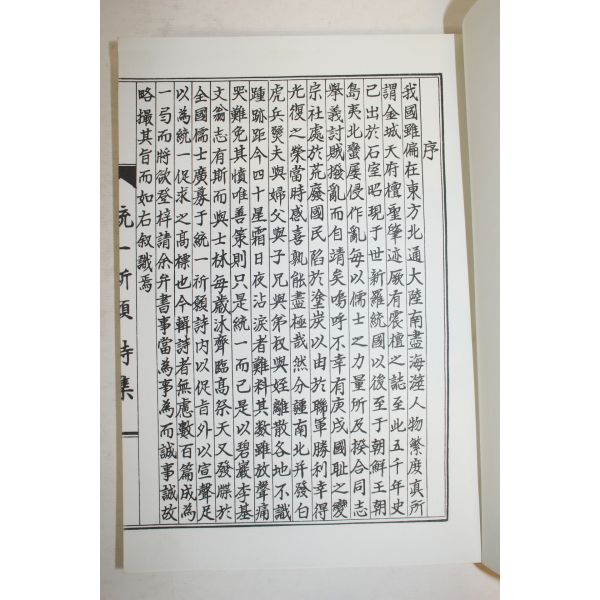 序
我國雖偏在東方北通大陸南盡海澨人物繁庶真所
謂金城天府檀聖肇迹厥有震檀之誌至此五千年史
已出於石室昭現于世新羅統國以後至于朝鮮王朝
島夷北蠻屢侵作亂每以儒士之力量所及揆合同志
舉義討賊撥亂而自靖矣嗚呼不幸有庚戌國恥之變
宗社處於荒廢國民陷於塗炭以由於聯軍勝利幸得
光復之榮當時感喜孰能盡極哉然分疆南北并發白
虎兵燹夫與婦父與子兄與弟叔與姪離散各地不識
踵跡距今四十星霜日夜沾淚者難料其數雖放聲痛
哭難免其憤唯善策則只是統一而已是以碧巖李基
文翁志有斯而與士林每歲氷齊臨高祭天又發牒於
全國儒士廣募于統一祈願詩內以促旨外以宣聲足
以為統一促求之高標也今輯詩者無慮數百篇成為
一号而將欲登梓請余弁書事當為事為而誠事誠故
略撮其旨而如右叙識焉
統一祈願詩集